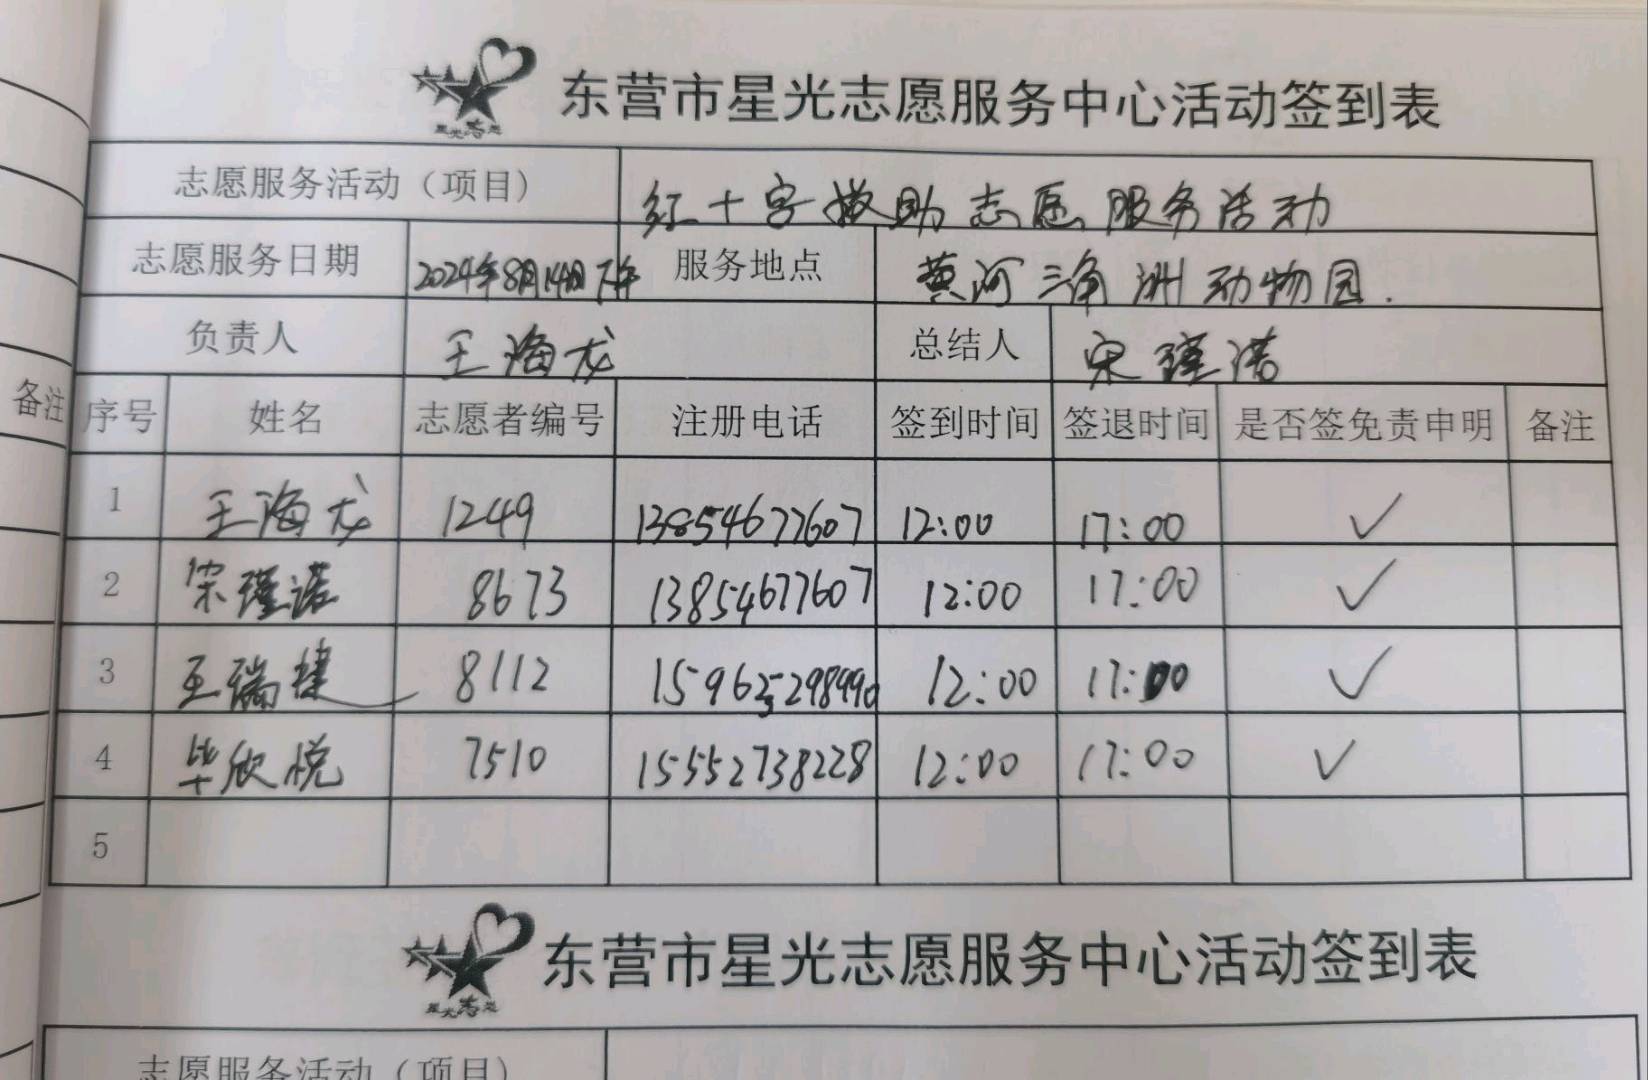 东营市星光志愿服务中心活动签到表
志愿服务活动（项目） 红十字救助志愿服务活动
志愿服务日期 2024年8月14日下午 服务地点 黄河三角洲动物园.
负责人 王海龙 总结人 宋瑾诺
备注
序号 姓名 志愿者编号 注册电话 签到时间 签退时间 是否签免责申明 备注
1 王海龙 1249 13854677607 12:00 17:00 ✓
2 宋瑾诺 8673 13854677607 12:00 17:00 ✓
3 王瑞捷 8112 12:00 17:00 ✓
4 毕欣悦 7510 15552738228 12:00 17:00 ✓
5
东营市星光志愿服务中心活动签到表
志愿服务活动（项目）